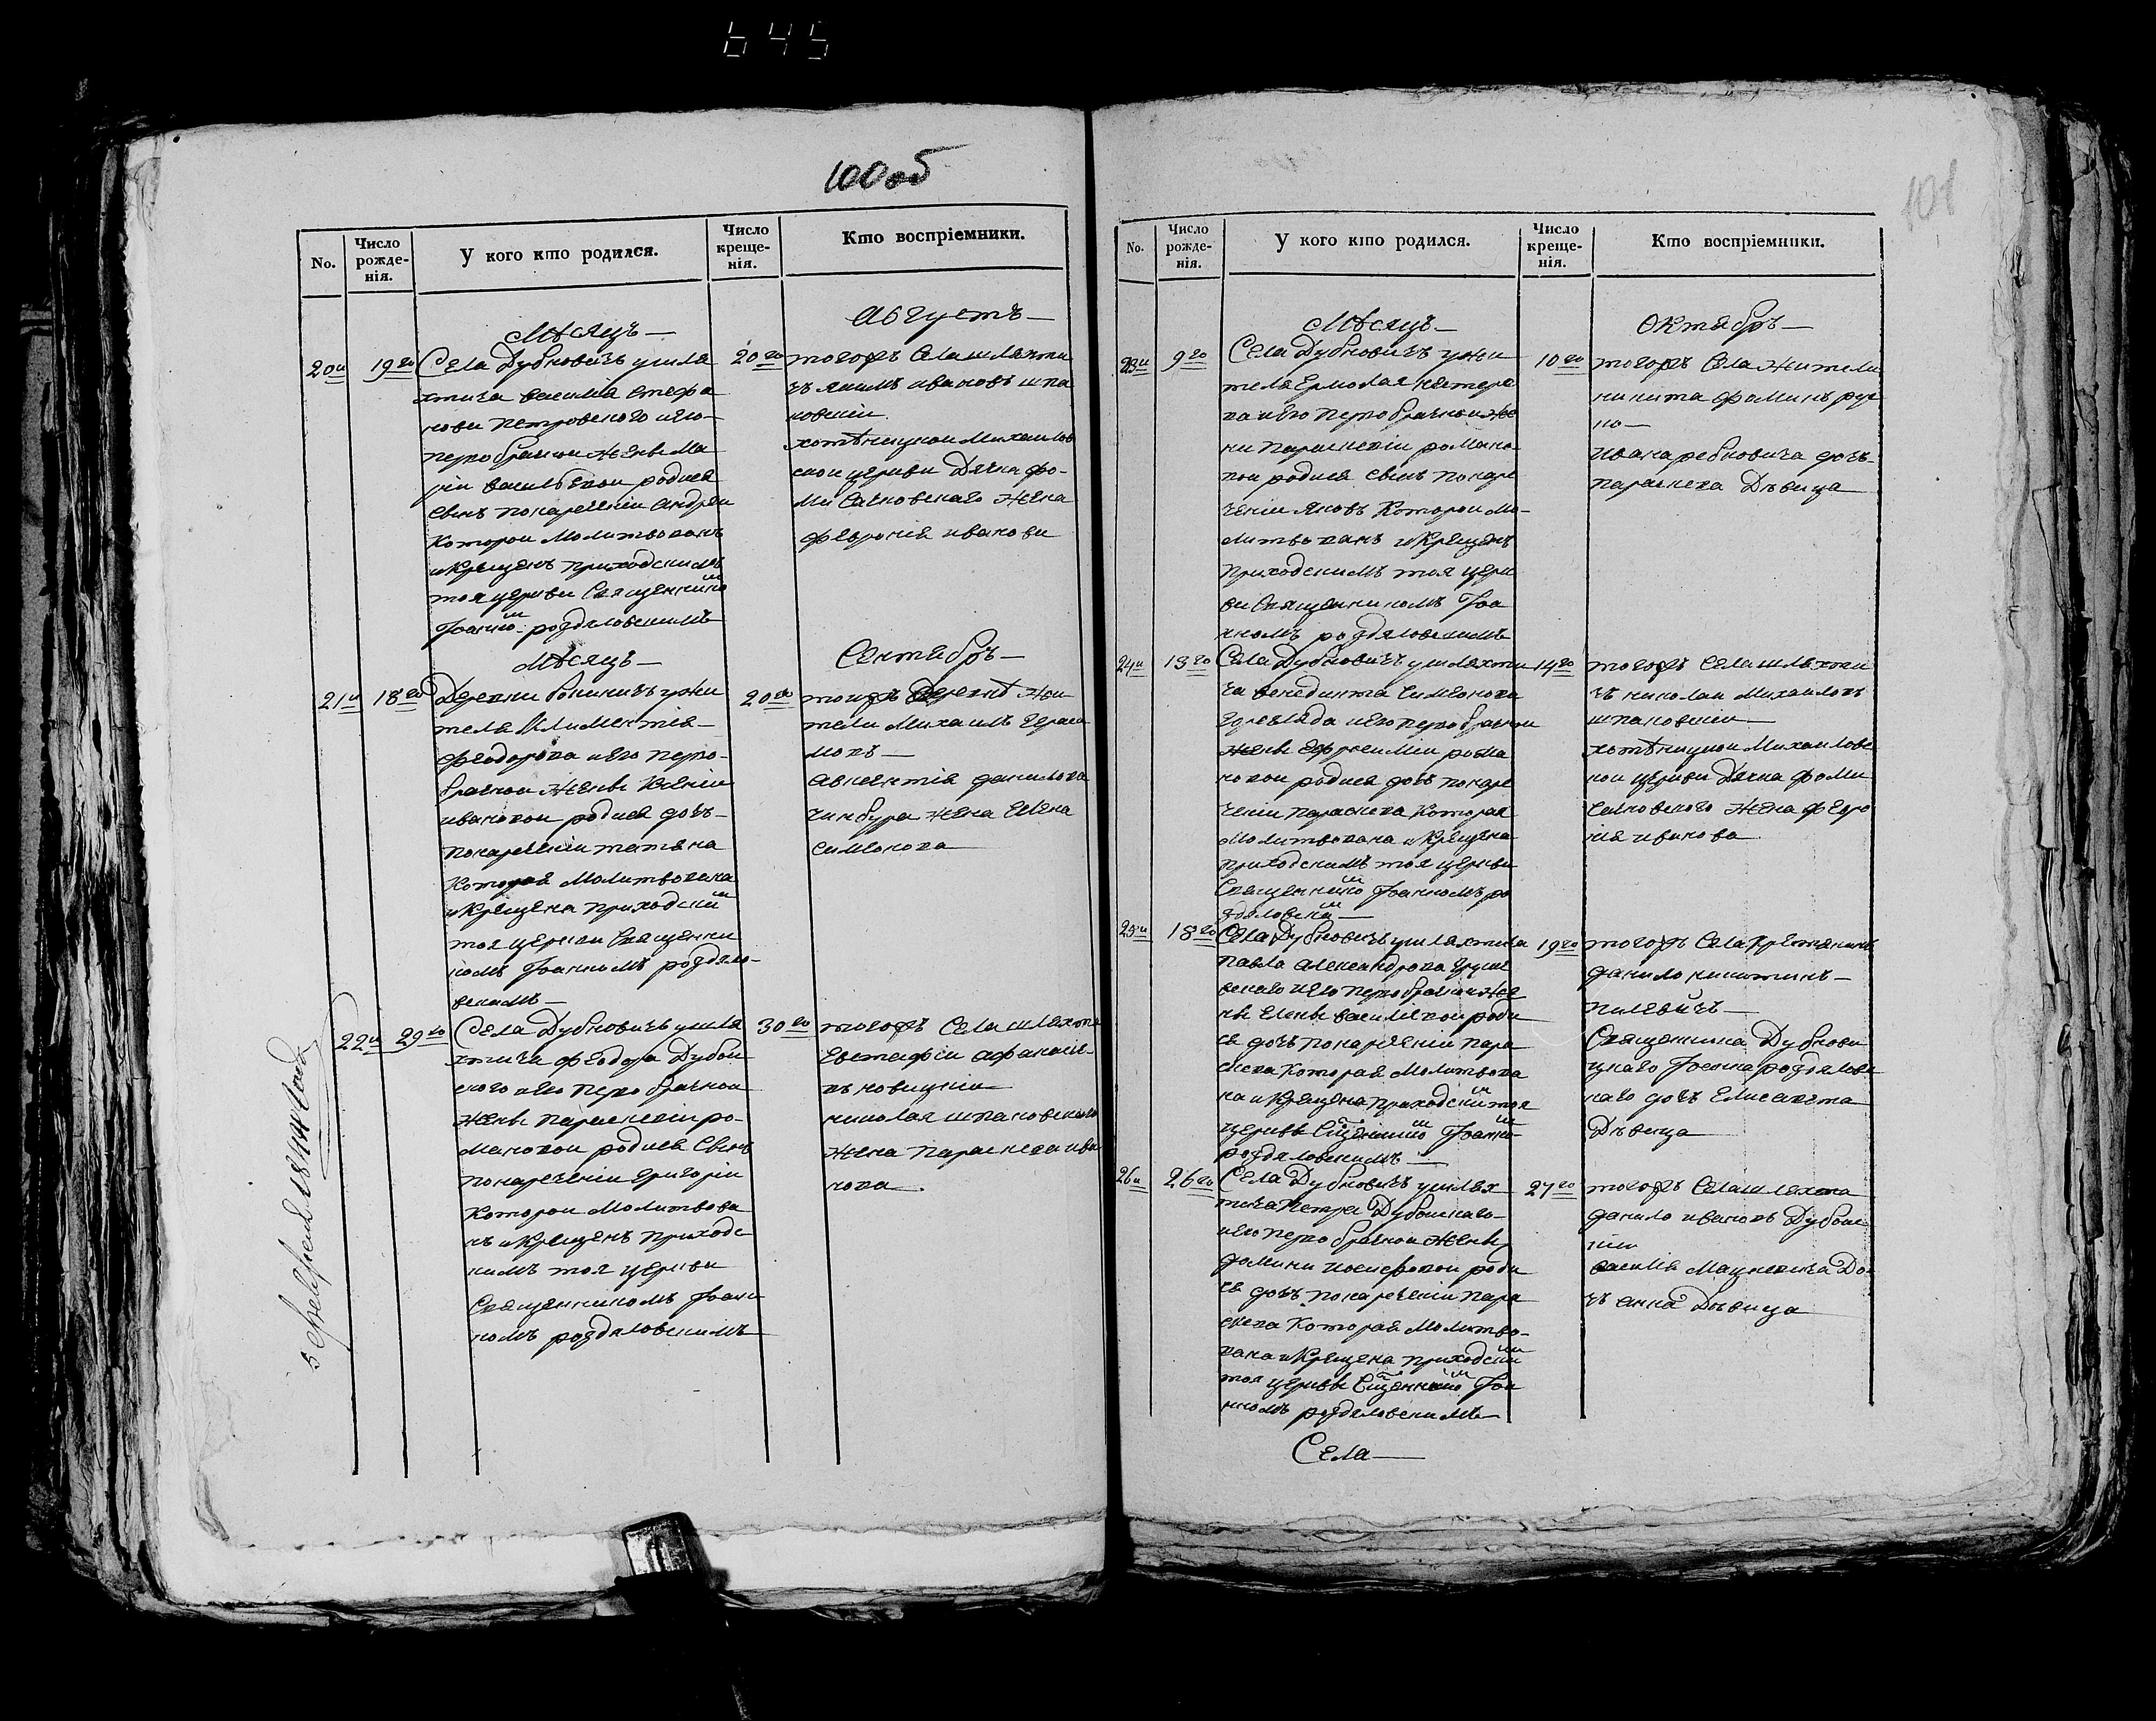 645
100 об
No.
Число рожде-нія.
У кого кто родился.
Число креще-нія.
Кто воспріемники.
Мѣсяцъ
Августъ
20й 19го Села Дубновичъ у шля
хтича Василія Стефа
нови Петровского и его
первобрачной жены Ма
ріи Васильевой родися
сынъ по нареченіи Андрей
которой молитвованъ
и крещенъ приходскимъ
тоя церкви Священнико
Іоанно роздяловскимъ
20го тогожъ Села шляхти
чъ Якимъ Ивановъ шпа
ковскій
хотѣницкой Михайлов
ской церкви Дячка Фо-
ми Сачковского жена
Феврония Иванови
Мѣсяцъ
Сентябръ
21й 18го Деревни у жи
теля Климентія
Феодорова и его перво-
брачной жены Ксеніи
Ивановой родися дочь
по нареченіи Татяна
которая молитвована
и крещена приходскій
тоя церкви Священни
комъ Іоанномъ роздяло-
вскимъ
20го тоижъ Деревнѣ жи
тели Михаилъ Гераси
мовъ
Авксентія Данилова
чинбура жена Елена
Симонова
22й 29го Села Дубновичъ у шля
хтича Феодора Дубой
ского и его первобрачной
жены Параскевіи Ро-
мановой родися сынъ
по нареченіи Григорій
которой молитвова
нъ и крещенъ приходс
кимъ тоя церкви
Священникомъ Іоан
номъ роздяловскимъ
30го тогожъ Села шляхти
Евстафій Афанасіе
въ новицкій
Николая шпаковского
жена Параскева Ива
нова
1844 года
101
No.
Число рожде-нія.
У кого кто родился.
Число креще-нія.
Кто воспріемники.
Мѣсяцъ
Октябръ
23й 9го Села Дубновичъ у жи
теля Ермолая
ва и его первобрачной же
ни Параскевіи Романо-
вой родися сынъ по наре
ченіи Яковъ которой мо-
литвованъ и крещенъ
приходскимъ тоя церк
ви Священникомъ Іоа
нномъ роздяловскимъ
10го тогожъ Села жители
Никита Фоминъ
Ивана ребковича дочь
Параскева Дѣвица
24й 13го Села Дубновичъ у шляхти
ча Венедикта Симонова
и его первобрачной
жены Ефросиміи Рома
новой родися дочь по наре
ченіи Параскева которая
молитвована и крещена
приходскимъ тоя церкви
Священнико Іоанномъ ро
здяловски
14го тогожъ Села шляхти
чъ Николай Михайловъ
шпаковскій
хотѣницкой Михайловс
кой церкви Дячка Фоми
Сачковского жена Февро
нія Иванова
25й 18го Села Дубновичъ у шляхтича
Павла Александрова
вскаго и его первобрачной же
ны Елены Василіевой роди
ся дочь по нареченіи Пара
скева которая молитвова
на и крещена приходскій тоя
церкви Іоанно
роздяловскимъ
19го тогожъ Села Крестянинъ
Данило Никитинъ
Священника Дубнови
цкаго Іоанна роздялов
скаго дочь Елисавета
Дѣвица
26й 26го Села Дубновичъ у шлях
тича Петра Дубойскаго
и его первобрачной жены
Домини Іосифовой роди
ся дочь по нареченіи Пара
скева которая молитво-
вана и крещена приходскій
тоя церкви Іоа
нномъ роздяловскимъ
27го тогожъ Села шляхта
Данило Ивановъ Дубойс
кій
Василія Мацкевича до
чъ Анна Дѣвица
Села